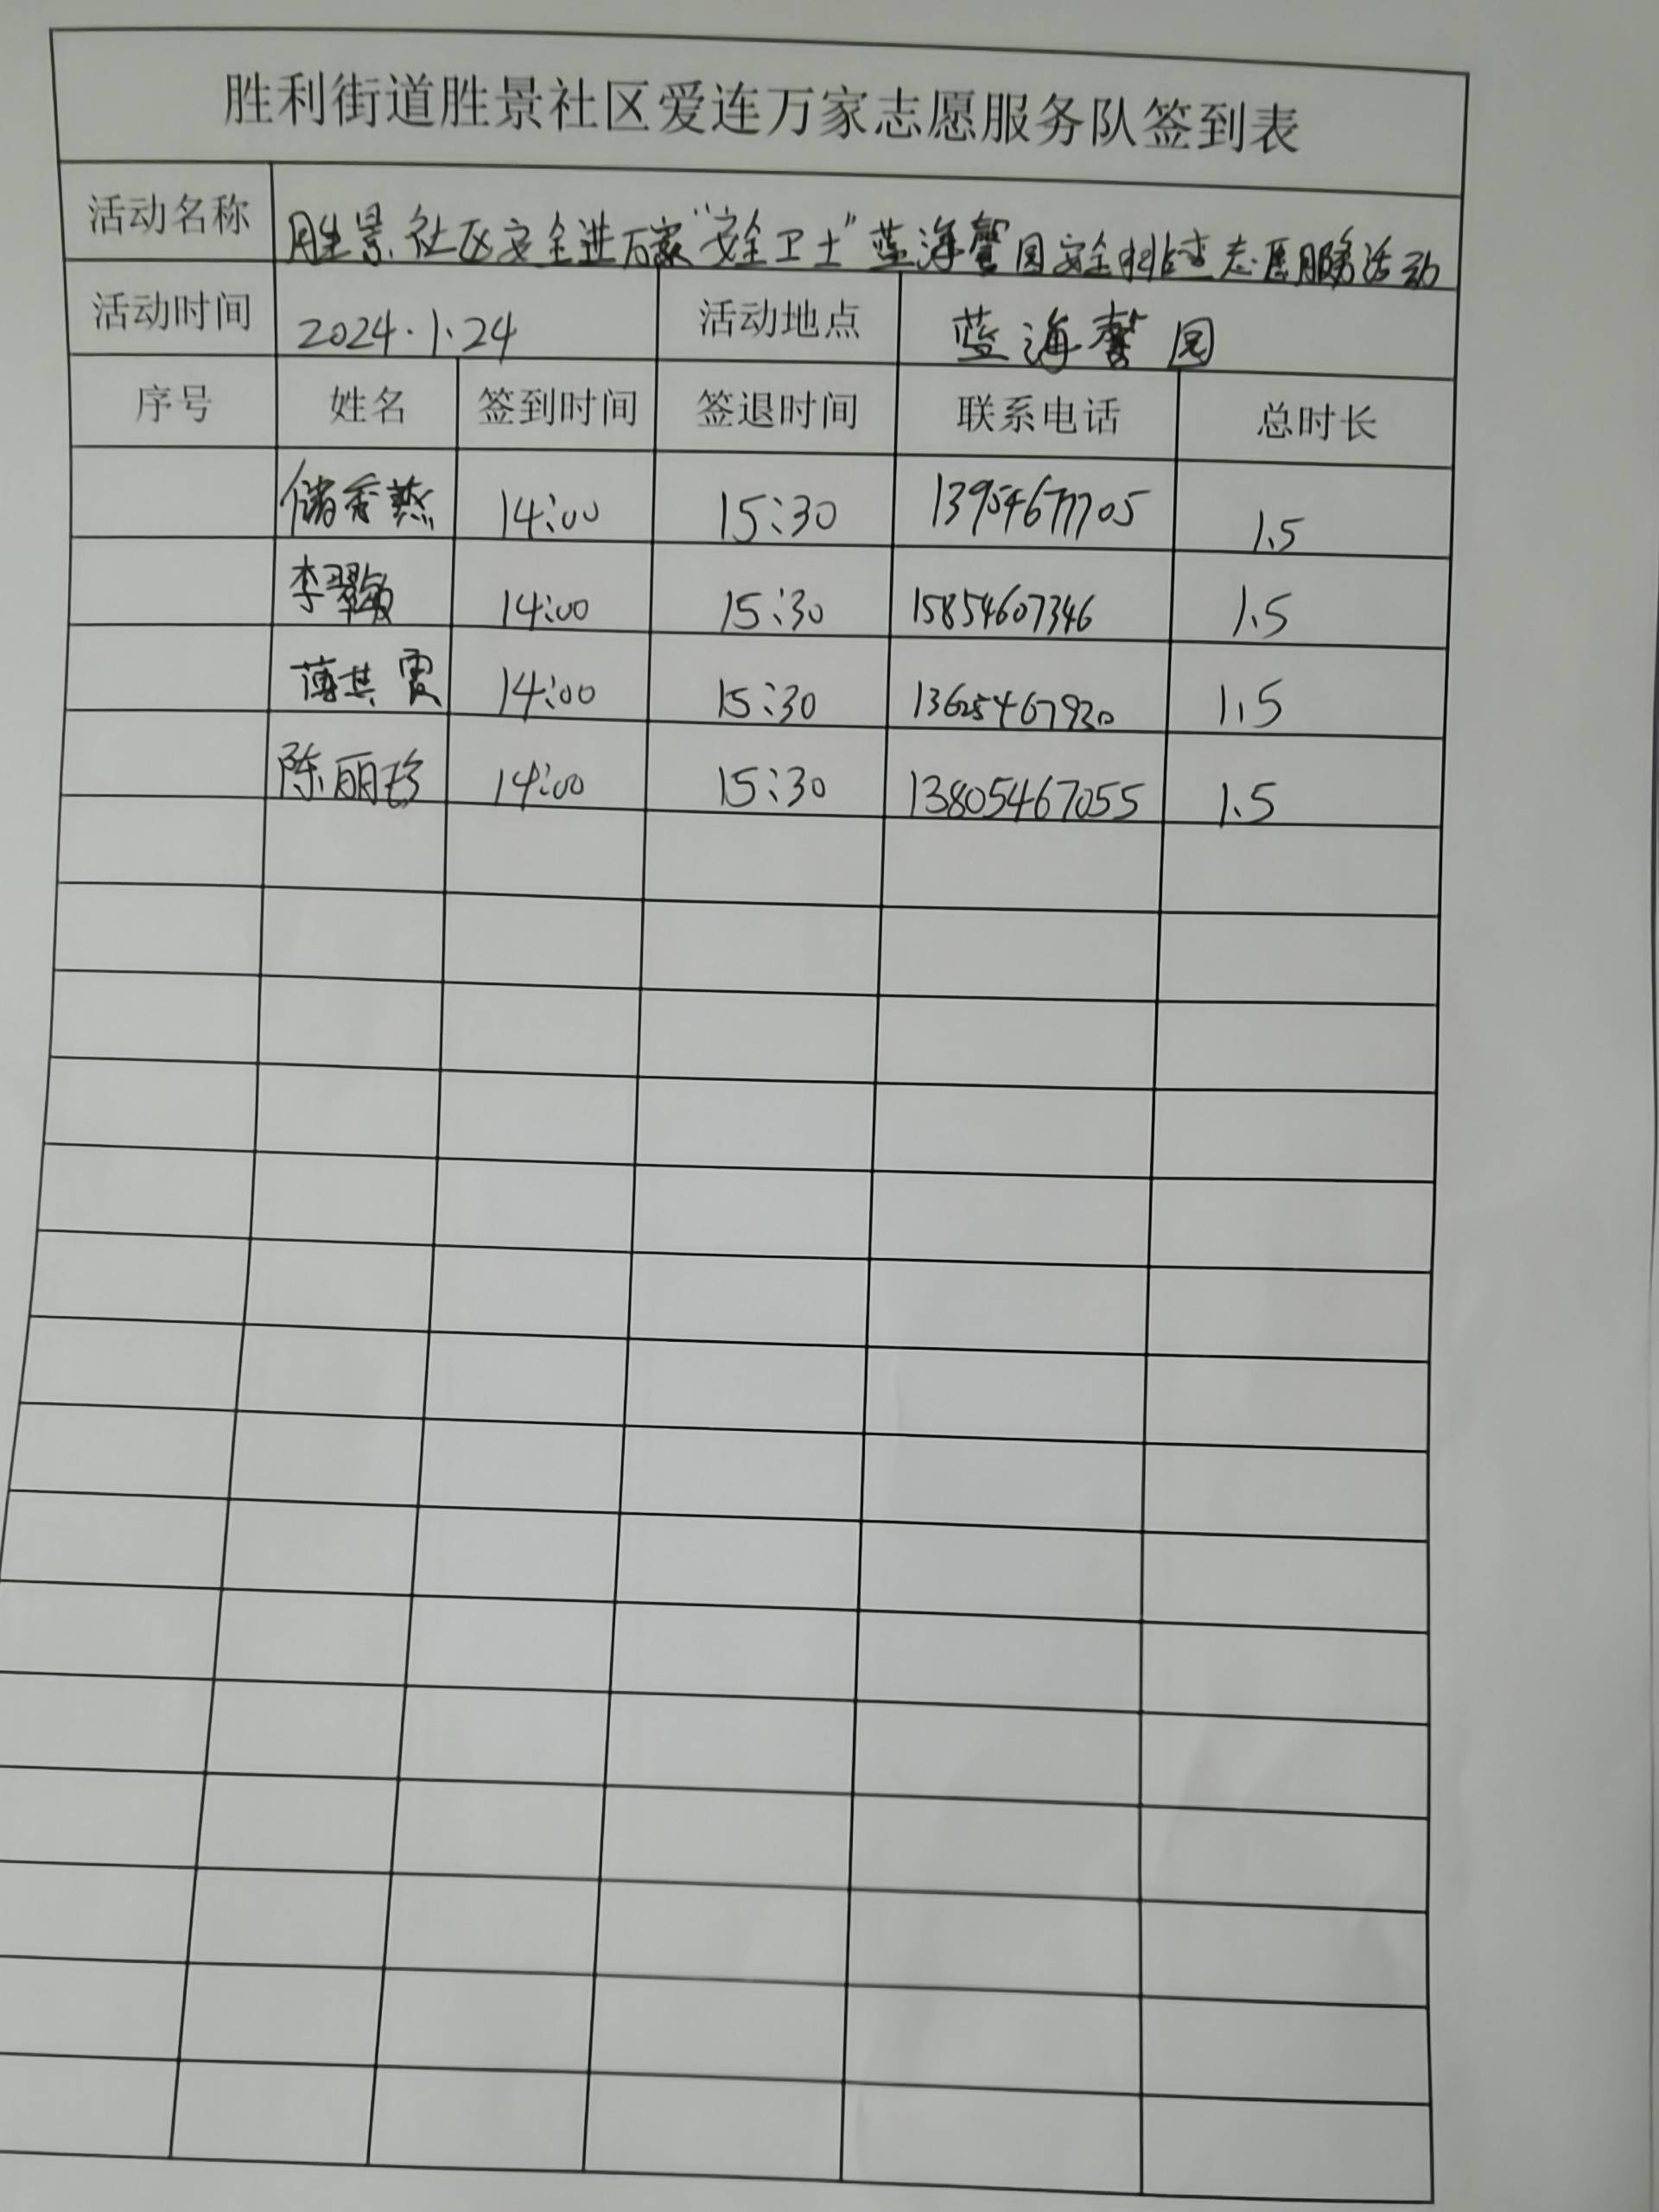 胜利街道胜景社区爱连万家志愿服务队签到表
活动名称 胜景社区安全进万家“安全卫士”蓝海馨园安全排查志愿服务活动
活动时间 2024.1.24 活动地点 蓝海馨园
序号 姓名 签到时间 签退时间 联系电话 总时长
储香燕 14:00 15:30 1.5
李翠敏 14:00 15:30 15854607346 1.5
薄其霞 14:00 15:30 13625467920 1.5
陈丽珍 14:00 15:30 13805467055 1.5